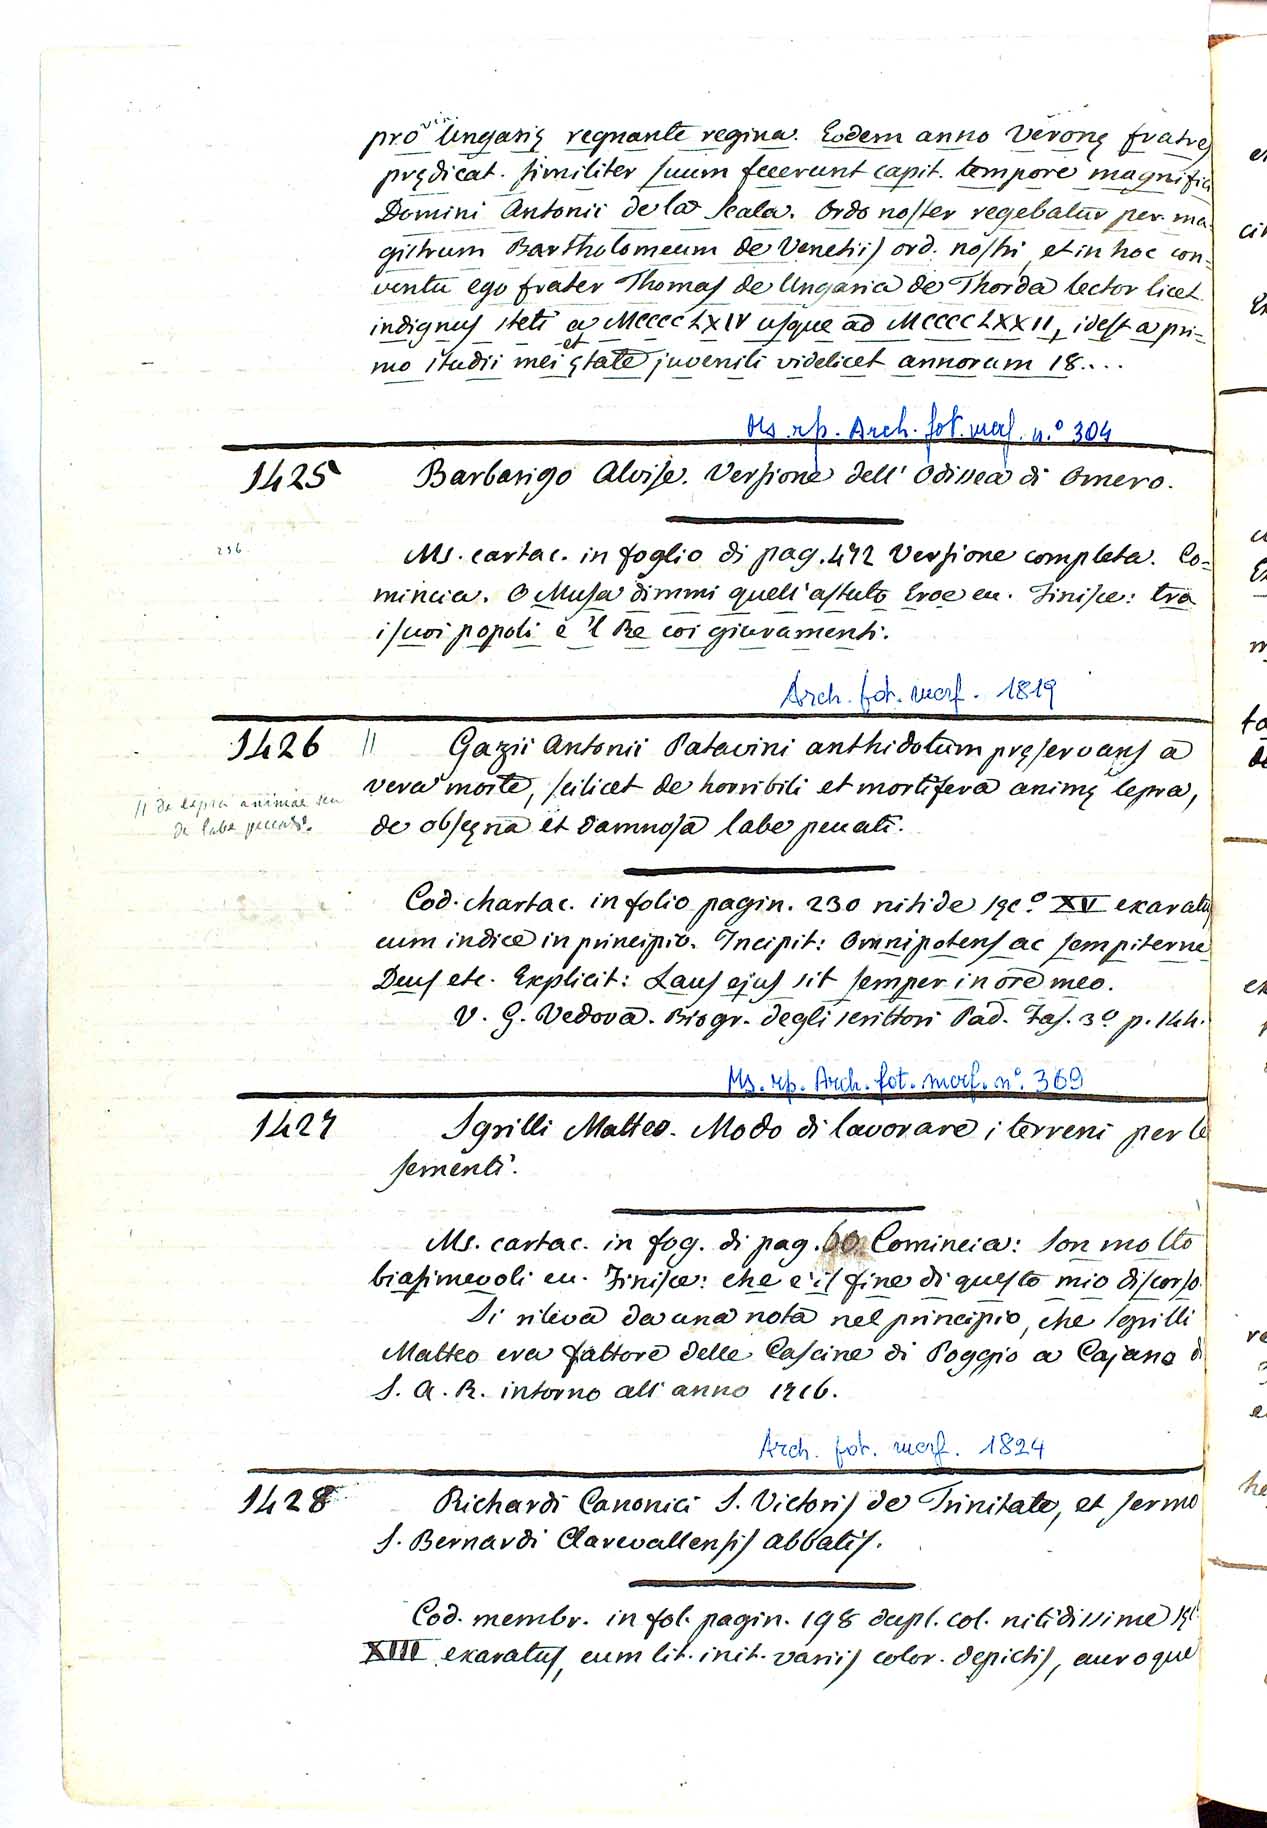 provin. Ungarię regnante regina. Eodem anno Veronę fratres
prędicat. similiter suum fecerunt capit. tempore magnifici
Domini Antonii de la Scala. Ordo noster regebatur per ma-
gistrum Bartholomeum de Venetiis ord. nostri, et in hoc con=
ventu ego frater Thomas de Ungaria de Thorda lector licet
indignus steti a MccccLXIV usque ad MccccLXXII, idest a pri=
mo studii mei et ętate juvenili videlicet annorum 18....
Ms. rp. Arch. fot. marf. n.º 304
1425 Barbarigo Alvise. Versione dell' Odissea di Omero.
236.
Ms. cartac. in foglio di pag. 472 Versione completa. Co=
mincia. O Musa dimmi quell'astuto Eroe ec. Finisce: tra
i suoi popoli e 'l Re coi giuramenti.
Arch. fot. marf. 1819
1426 // Gazii Antonii Patavini anthidotum pręservans a
vera morte, scilicet de horribili et mortifera animę lepra,
// de lepra animae seu
de labe peccati.
de obscęna et damnosa labe peccati.
Cod. chartac. in folio pagin. 230 nitide sęc.º XV exaratus
cum indice in principio. Incipit: Omnipotens ac sempiterne
Deus etc. Explicit: Laus ejus sit semper in ore meo.
V. G. Vedova. Biogr. degli scrittori Pad. Fas. 3.º p. 144.
Ms. rp. Arch. fot. marf. nº. 369
1427 Sgrilli Matteo. Modo di lavorare i terreni per le
sementi.
Ms. cartac. in fog. di pag. 60. Comincia: Son molto
biasimevoli ec. Finisce: che è il fine di questo mio discorso.
Si rileva da una nota nel principio, che Sgrilli
Matteo era fattore delle Cascine di Poggio a Cajano di
S. A. R. intorno all'anno 1716.
Arch. fot. marf. 1824
1428 Richardi Canonici S. Victoris de Trinitate, et sermo
S. Bernardi Clarevallensis abbatis.
Cod. membr. in fol. pagin. 198 dupl. col. nitidissime sęc.
XIII exaratus, cum lit. init. variis color. depictis, auroque